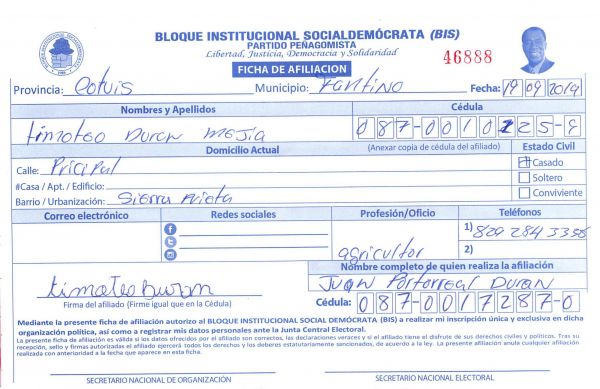 BLOQUE INSTITUCIONAL SOCIALDEMÓCRATA (BIS)
PARTIDO PEÑAGOMISTA
Libertad, Justicia, Democracia y Solidaridad
46888
FICHA DE AFILIACION
Provincia: Cotuis Municipio: Fantino Fecha: 19 09 2019
Nombres y Apellidos Cédula
timoteo Duran mejia 087-0010 25-
Domicilio Actual (Anexar copia de cédula del afiliado) Estado Civil
Calle: Pricipal Casado
#Casa / Apt. / Edificio: Soltero
Barrio / Urbanización: Sierra Prieta Conviviente
Correo electrónico Redes sociales Profesión/Oficio Teléfonos
1) 829 284 3356
agricultor 2)
Nombre completo de quien realiza la afiliación
timoteo Duran Juan Portorreal Duran
Firma del afiliado (Firme igual que en la Cédula) Cédula: 087-0017287-0
Mediante la presente ficha de afiliación autorizo al BLOQUE INSTITUCIONAL SOCIAL DEMÓCRATA (BIS) a realizar mi inscripción única y exclusiva en dicha
organización política, así como a registrar mis datos personales ante la Junta Central Electoral.
La presente ficha de afiliación es válida si los datos ofrecidos por el afiliado son correctos, las declaraciones veraces y si el afiliado tiene el disfrute de sus derechos civiles y políticos. Tras su
recepción, sello y firmas autorizadas el afiliado ejercerá todos los derechos y los deberes estatutariamente sancionados, de acuerdo a la ley. La presente afiliación anula cualquier afiliación
realizada con anterioridad a la fecha que aparece en esta ficha.
SECRETARIO NACIONAL DE ORGANIZACIÓN SECRETARIO NACIONAL ELECTORAL